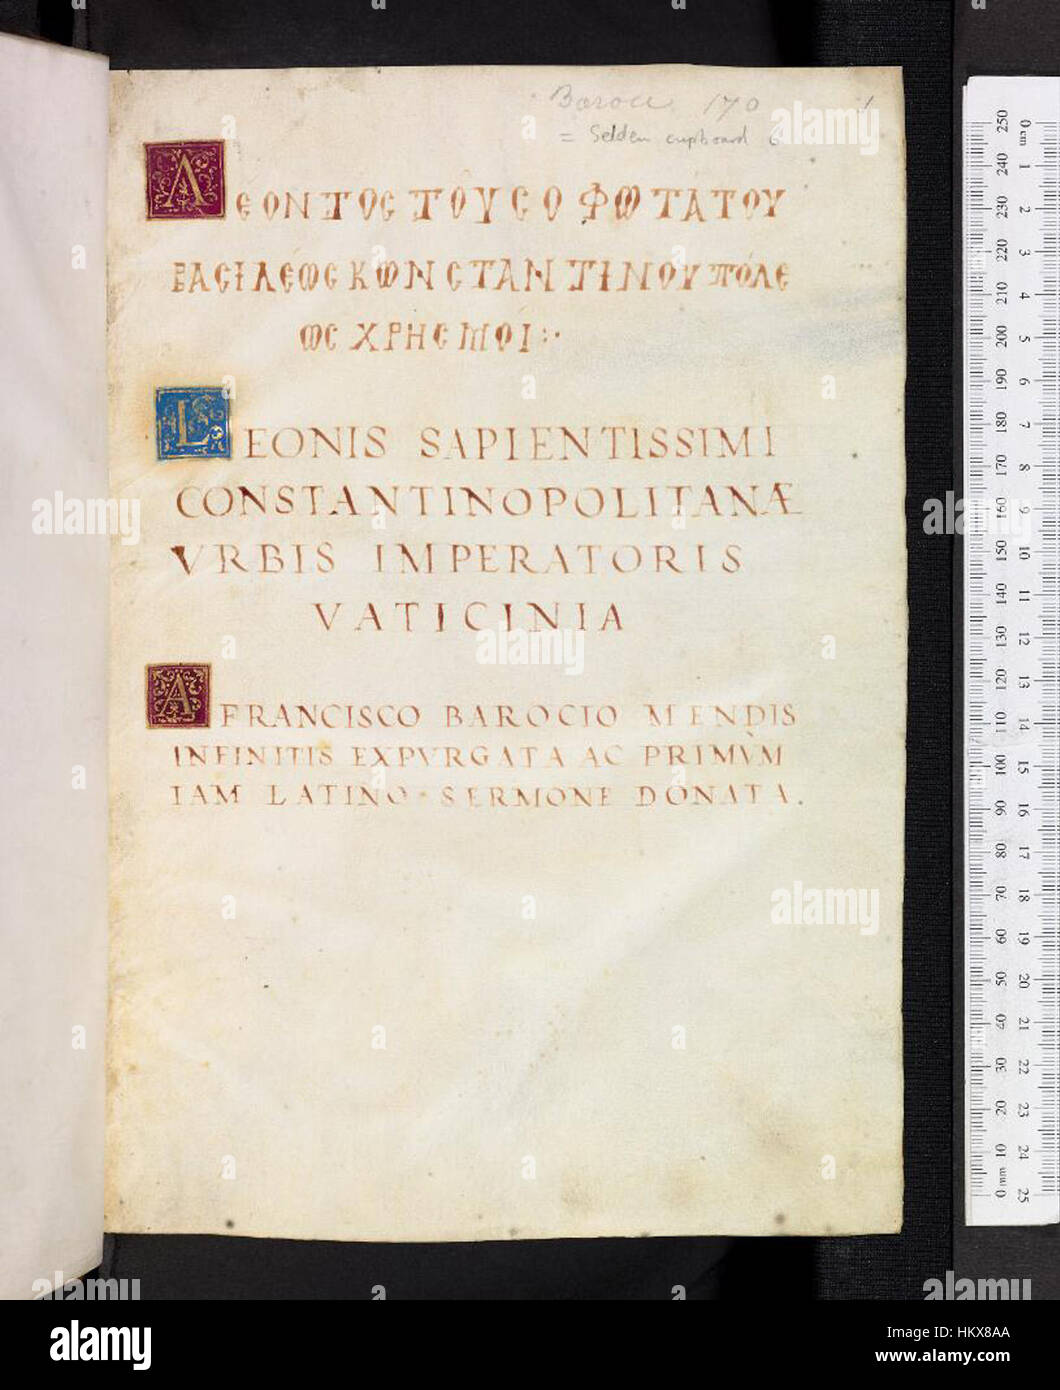 Barocc. 170
1
= Selden cupboard 6
ΛΕΟΝΤΟС ΤΟΥ СΟΦΩΤΑΤΟΥ
ΒΑСΙΛΕΩС ΚΩΝСΤΑΝΤΙΝΟΥΠΌΛΕ
ΩС ΧΡΗСΜΟΊ :·
LEONIS SAPIENTISSIMI
CONSTANTINOPOLITANÆ
VRBIS IMPERATORIS
VATICINIA
A FRANCISCO BAROCIO MENDIS
INFINITIS EXPVRGATA AC PRIMV̀M
IAM LATINO SERMONE DONATA.
0 cm 1 2 3 4 5 6 7 8 9 10 11 12 13 14 15 16 17 18 19 20 21 22 23 24 25
250 240 230 220 210 200 190 180 170 160 150 140 130 120 110 100 90 80 70 60 50 40 30 20 10 0 mm
alamy
Image ID: HKX8AA
www.alamy.com